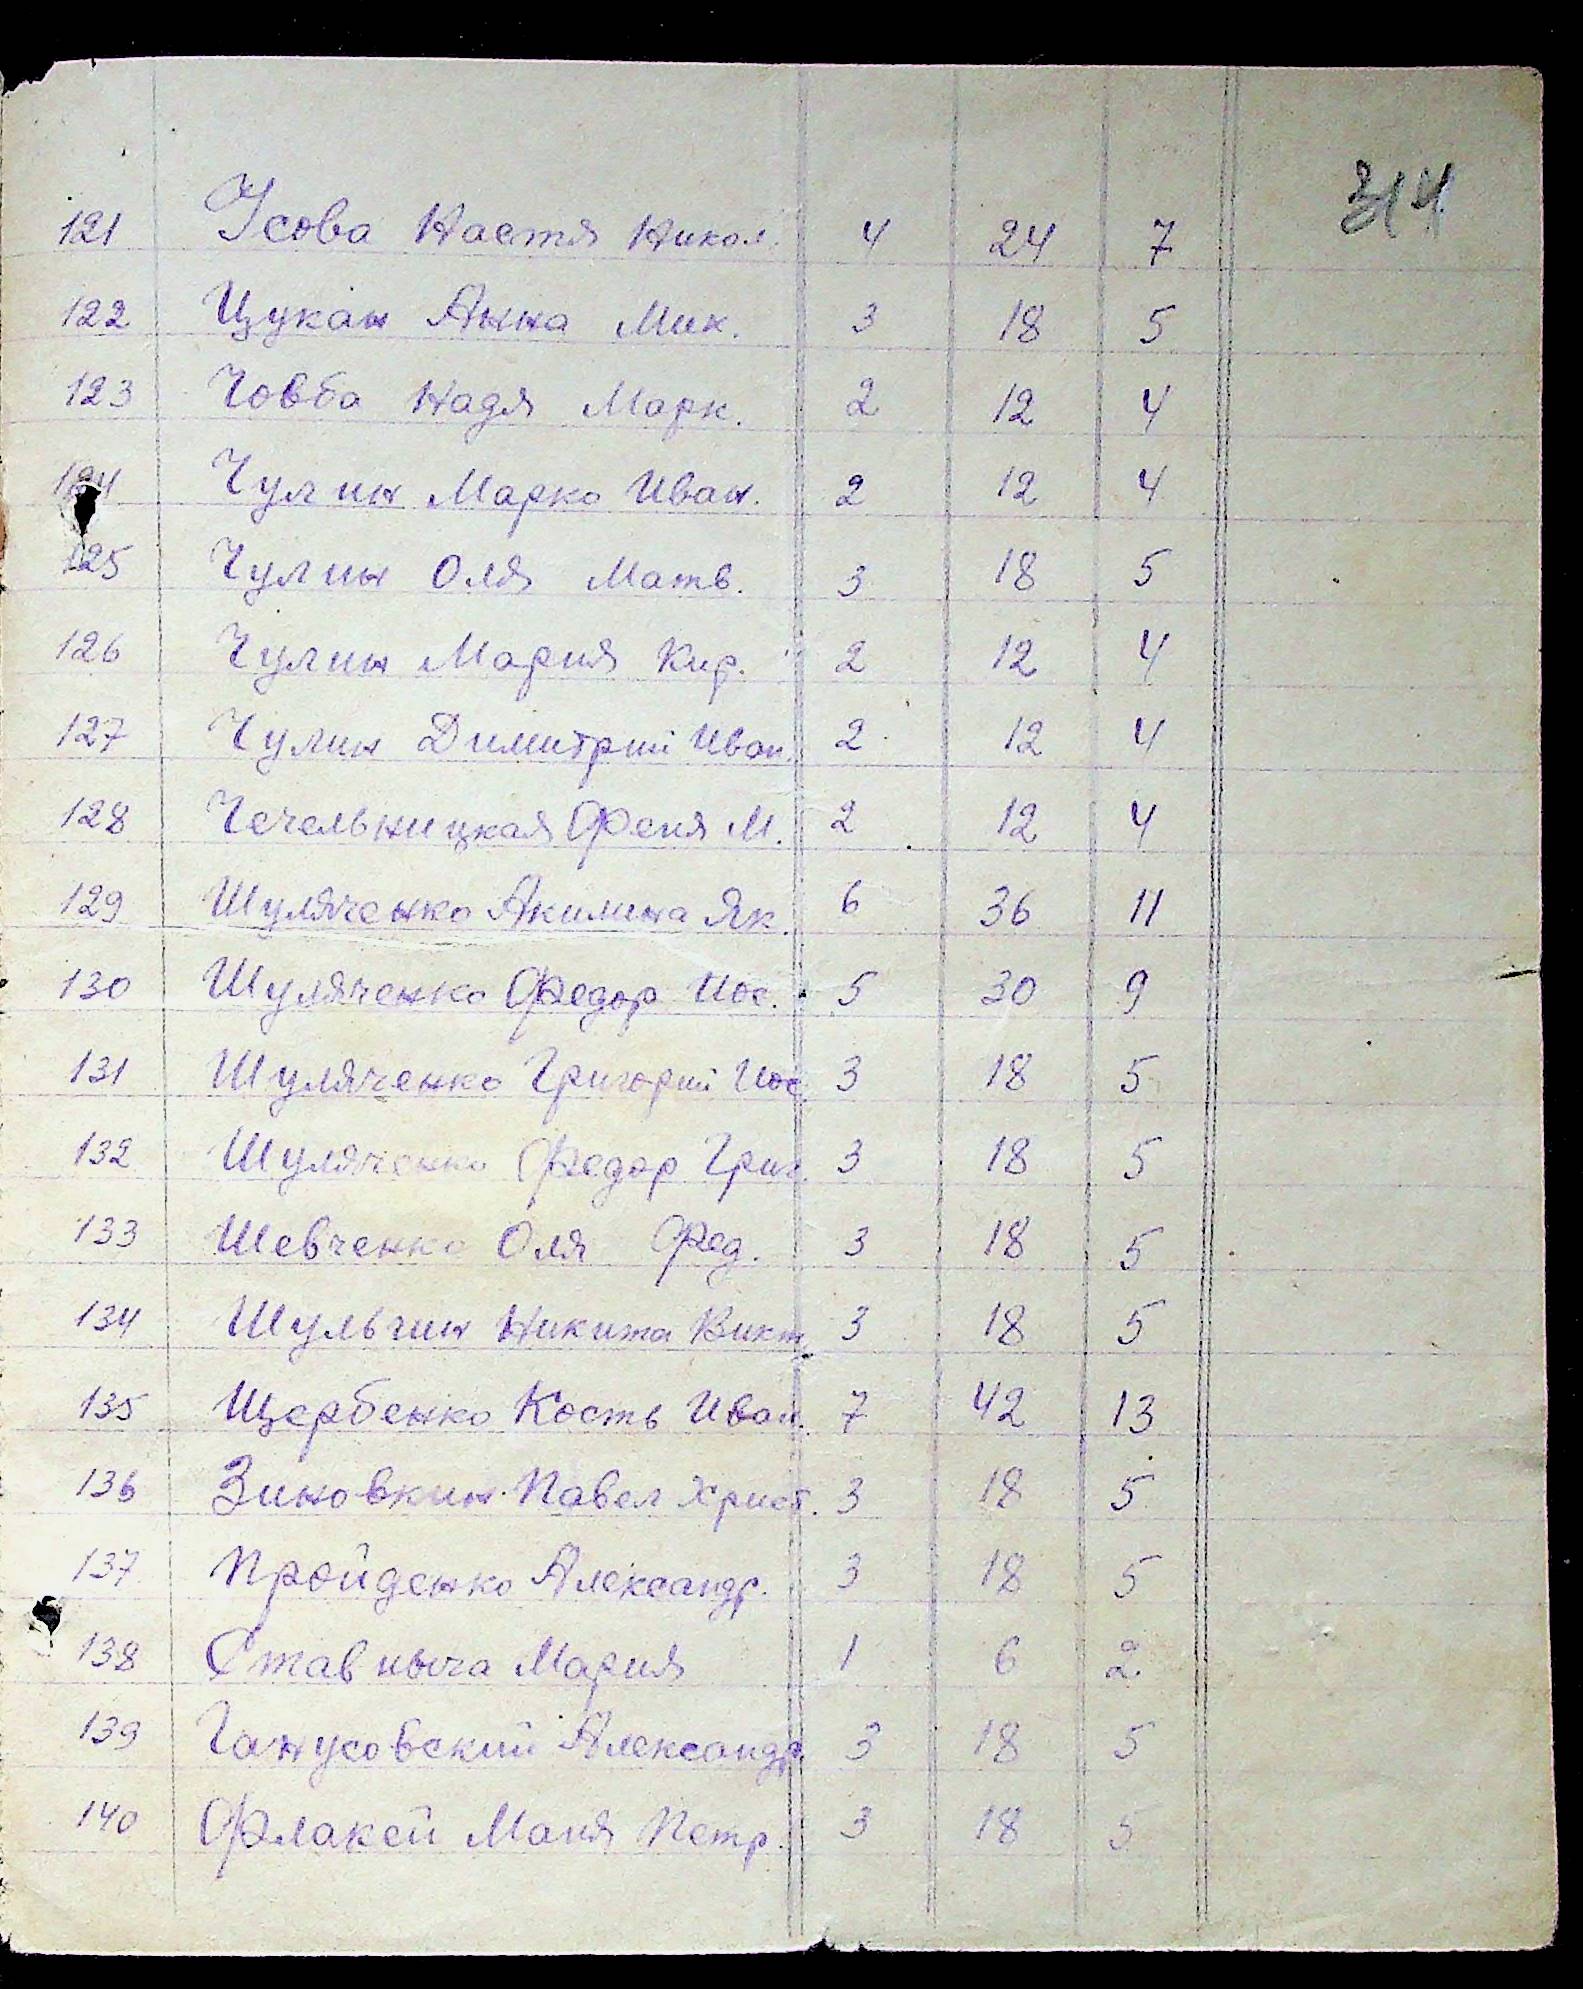 314
121 Усова Настя Никол. 4 24 7
122 Цукан Анна Мик. 3 18 5
123 Човба Надя Марк. 2 12 4
124 Чулин Марко Иван. 2 12 4
125 Чулин Оля Матв. 3 18 5
126 Чулин Мария Кир. 2 12 4
127 Чулин Димитрий Иван. 2 12 4
128 Чечельницкая Феня М. 2 12 4
129 Шуляченко Акилина Як. 6 36 11
130 Шуляченко Федор Иос. 5 30 9
131 Шуляченко Григорий Иос. 3 18 5
132 Шуляченко Федор Григ. 3 18 5
133 Шевченко Оля Фед. 3 18 5
134 Шульгин Никита Викт. 3 18 5
135 Щербенко Кость Иван. 7 42 13
136 Зиновкин Павел Христ. 3 18 5
137 Пройденко Александр. 3 18 5
138 Ставныча Мария 1 6 2
139 Ганусовский Александр. 3 18 5
140 Флакей Маня Петр. 3 18 5